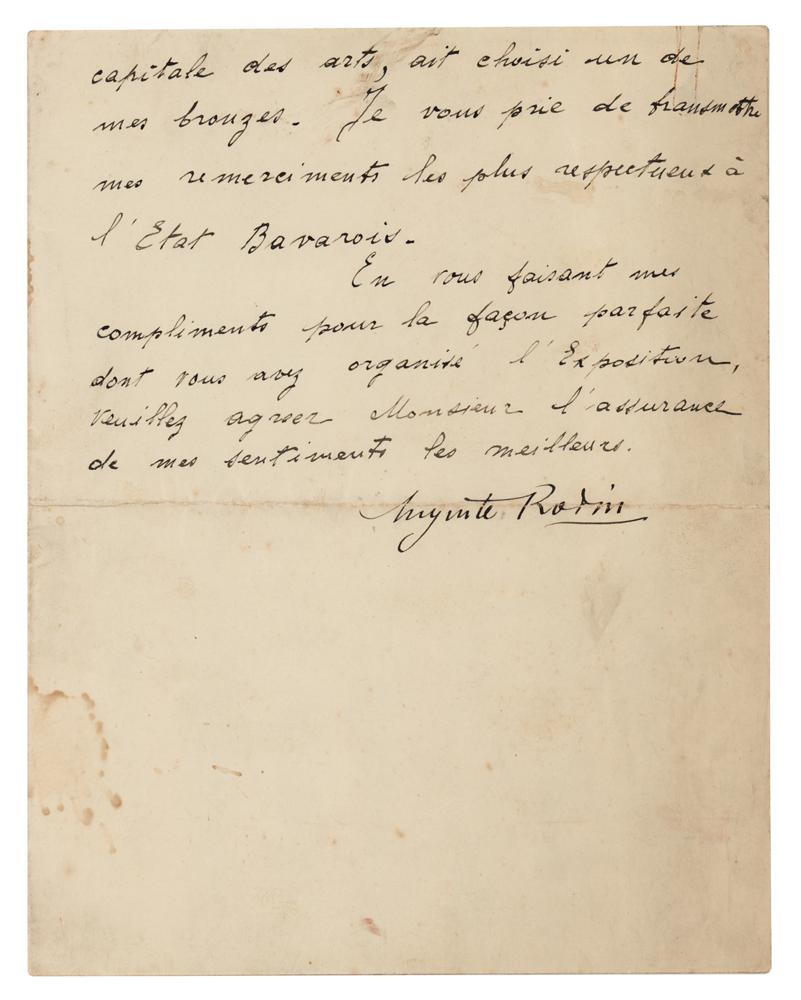 capitale des arts, ait choisi un de
mes bronzes. Je vous prie de transmettre
mes remerciments les plus respectueux à
l'Etat Bavarois.
En vous faisant mes
compliments pour la façon parfaite
dont vous avez organisé l'Exposition,
veuillez agréer Monsieur l'assurance
de mes sentiments les meilleurs.
Auguste Rodin